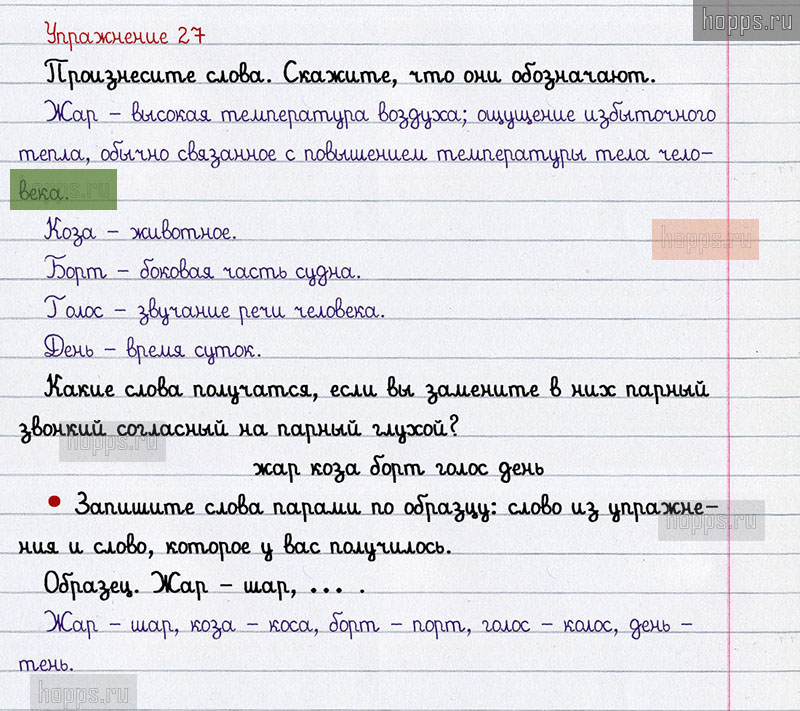 hopps.ru
Упражнение 27
Произнесите слова. Скажите, что они обозначают.
Жар – высокая температура воздуха; ощущение избыточного
тепла, обычно связанное с повышением температуры тела чело–
века.
hopps.ru
Коза – животное.
hopps.ru
Борт – боковая часть судна.
Голос – звучание речи человека.
День – время суток.
Какие слова получатся, если вы замените в них парный
звонкий согласный на парный глухой?
hopps.ru
жар коза борт голос день
• Запишите слова парами по образцу: слово из упражне–
hopps.ru
ния и слово, которое у вас получилось.
Образец. Жар – шар, ... .
Жар – шар, коза – коса, борт – порт, голос – колос, день –
тень.
hopps.ru